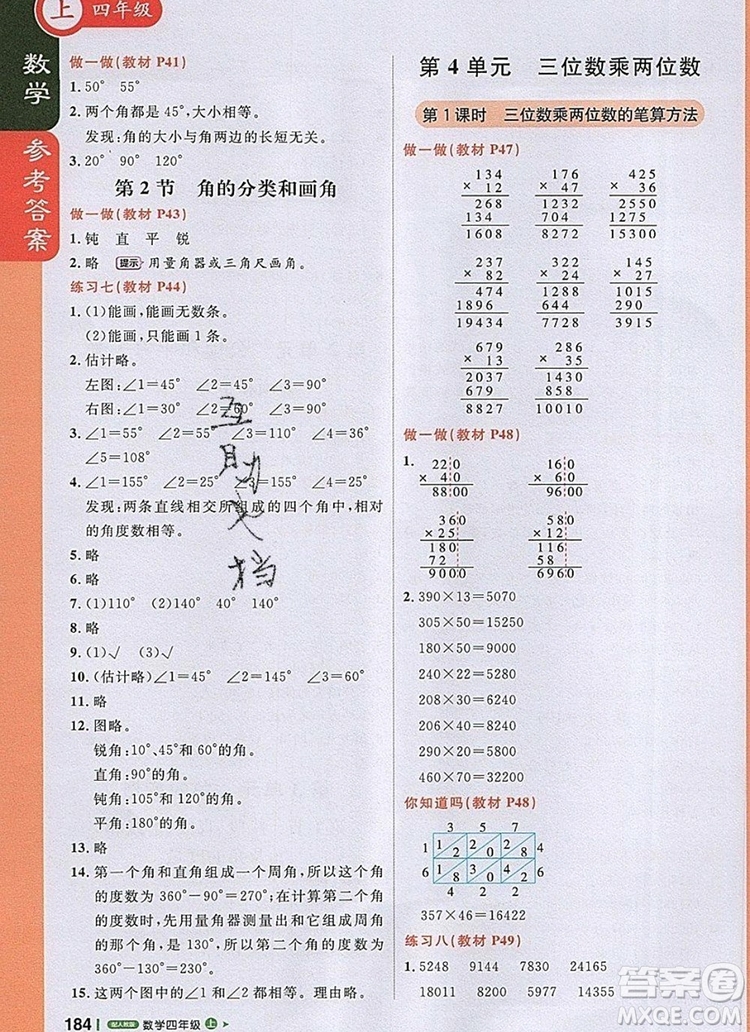 上 四年级
数学
参考答案
做一做(教材 P41)
1. 50° 55°
2. 两个角都是 45°,大小相等。
发现:角的大小与角两边的长短无关。
3. 20° 90° 120°
第 2 节 角的分类和画角
做一做(教材 P43)
1. 钝 直 平 锐
2. 略 提示 用量角器或三角尺画角。
练习七(教材 P44)
1. (1)能画,能画无数条。
(2)能画,只能画 1 条。
2. 估计略。
左图:∠1=45° ∠2=45° ∠3=90°
右图:∠1=30° ∠2=60° ∠3=90°
3. ∠1=55° ∠2=55° ∠3=90°
∠5=108°
4. ∠1=155° ∠2=25° ∠3=155°
发现:两条直线相交所组成的四个角中,相对
的角度数相等。
5. 略
6. 略
7. (1)110° (2)140° 40° 140°
8. 略
9. (1)√ (3)√
10. (估计略)∠1=45° ∠2=60° ∠3=120°
11. 略
12. 图略。
锐角:10°、45° 和 60° 的角。
直角:90° 的角。
钝角:105° 和 120° 的角。
平角:180° 的角。
13. 略
14. 第一个角和直角组成一个周角,所以这个角
的度数为 360°-90°=270°;在计算第二个角
的度数时,先用量角器测量出和它组成周角
的那个角,是 130°,所以第二个角的度数为
360°-130°=230°。
15. 这两个图中的角分别相等。理由略。
184 配人教版 数学四年级 上
互助文档
第 4 单元 三位数乘两位数
第 1 课时 三位数乘两位数的笔算方法
做一做(教材 P47)
134 176 425
× 12 × 47 × 36
268 1232 2550
134 704 1275
1608 8272 15300
237 82 × 24 × 53
474 1352 1147
1896 4 2
19434 7 98
679 286
× 13 × 35
2037 1430
679 858
8827 10010
做一做(教材 P48)
1. 220 160
× 40 × 60
8800 9600
360 580
× 25 × 12
180 116
72 58
9000 6960
2. 390×13=5070
305×50=15250
180×50=9000
240×28=6720
208×30=6240
206×40=8240
560×23=12880
460×70=32200
你知道吗(教材 P48)
3 5 7
1 1 2 2 0 2 8 4
6 1 8 3 0 4 2 6
4 2 2
357×46=16422
练习八(教材 P49)
1. 5248 9144 7830 24157
18011 8200 23541 14235
答案圈